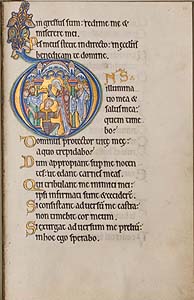 ingressus sum: redime me &
miserere mei.
Pes meus stetit in directo: in eccl'iis
benedicam te domine.
DNS
illumina
tio mea &
salus mea:
quem time
bo?
Dominus protector vite mee:
a quo trepidabo?
Dum appropiant sup me nocen
tes: ut edant carnes meas.
Qui tribulant me inimici mei:
ipsi infirmati sunt & cecider̃.
Si consistant adversum me castra:
non timebit cor meum.
Si exurgat adversum me preliũ:
in hoc ego sperabo.